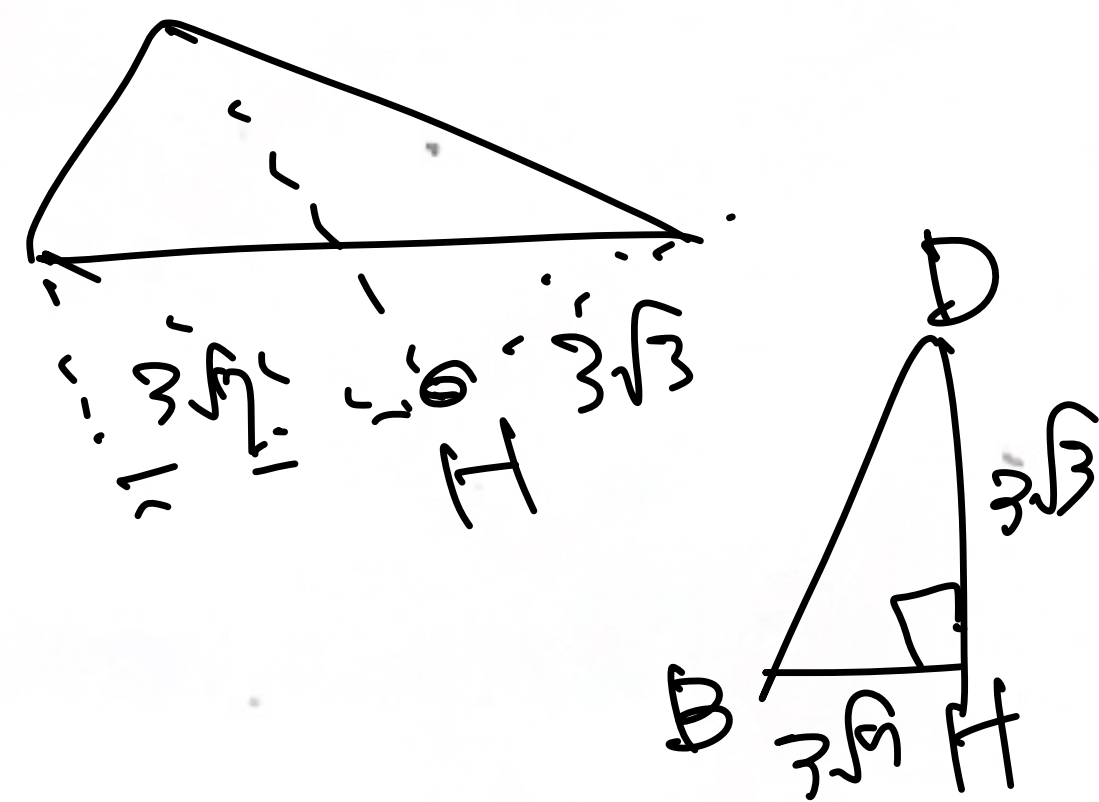 3√7
3√3
H
D
3√3
B
3√7
H